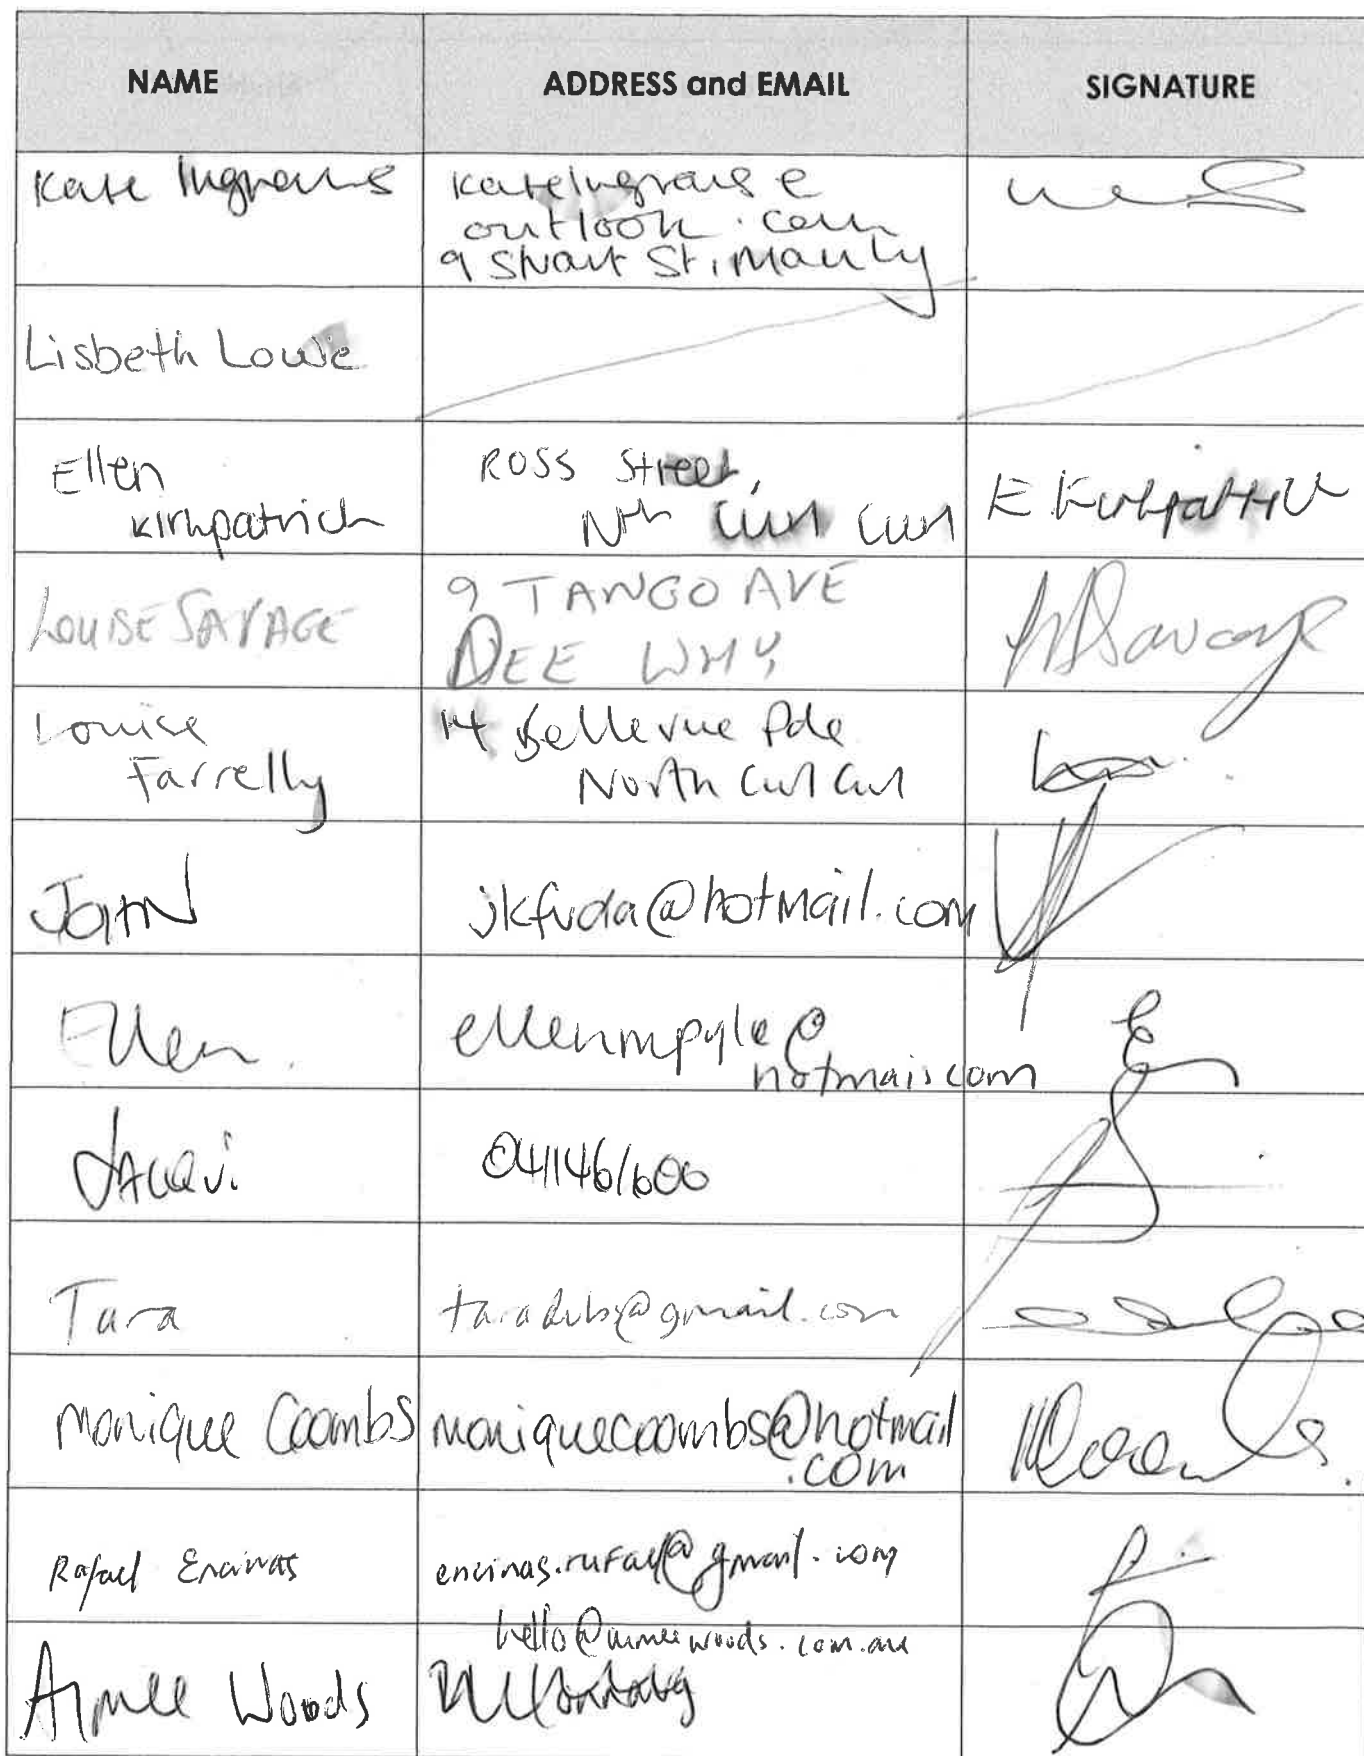 NAME ADDRESS and EMAIL SIGNATURE
Kate Ingrams
kateingrams@
outlook.com
9 Stuart St, Manly
Lisbeth Lowe
Ellen
Kirkpatrick
Ross Street,
Nth Curl Curl
E Kirkpatrick
LOUISE SAVAGE
9 TANGO AVE
DEE WHY
Savage
Louise
Farrelly
14 Bellevue Pde
North Curl Curl
JOHN
jkfuda@hotmail.com
Ellen
ellenmpyle@
hotmail.com
JACQUI
0411461600
Tara
taradubs@gmail.com
Monique Coombs
moniquecoombs@hotmail
.com
Rafael Encinas
encinas.rafael@gmail.com
Aimee Woods
hello@aimeewoods.com.au